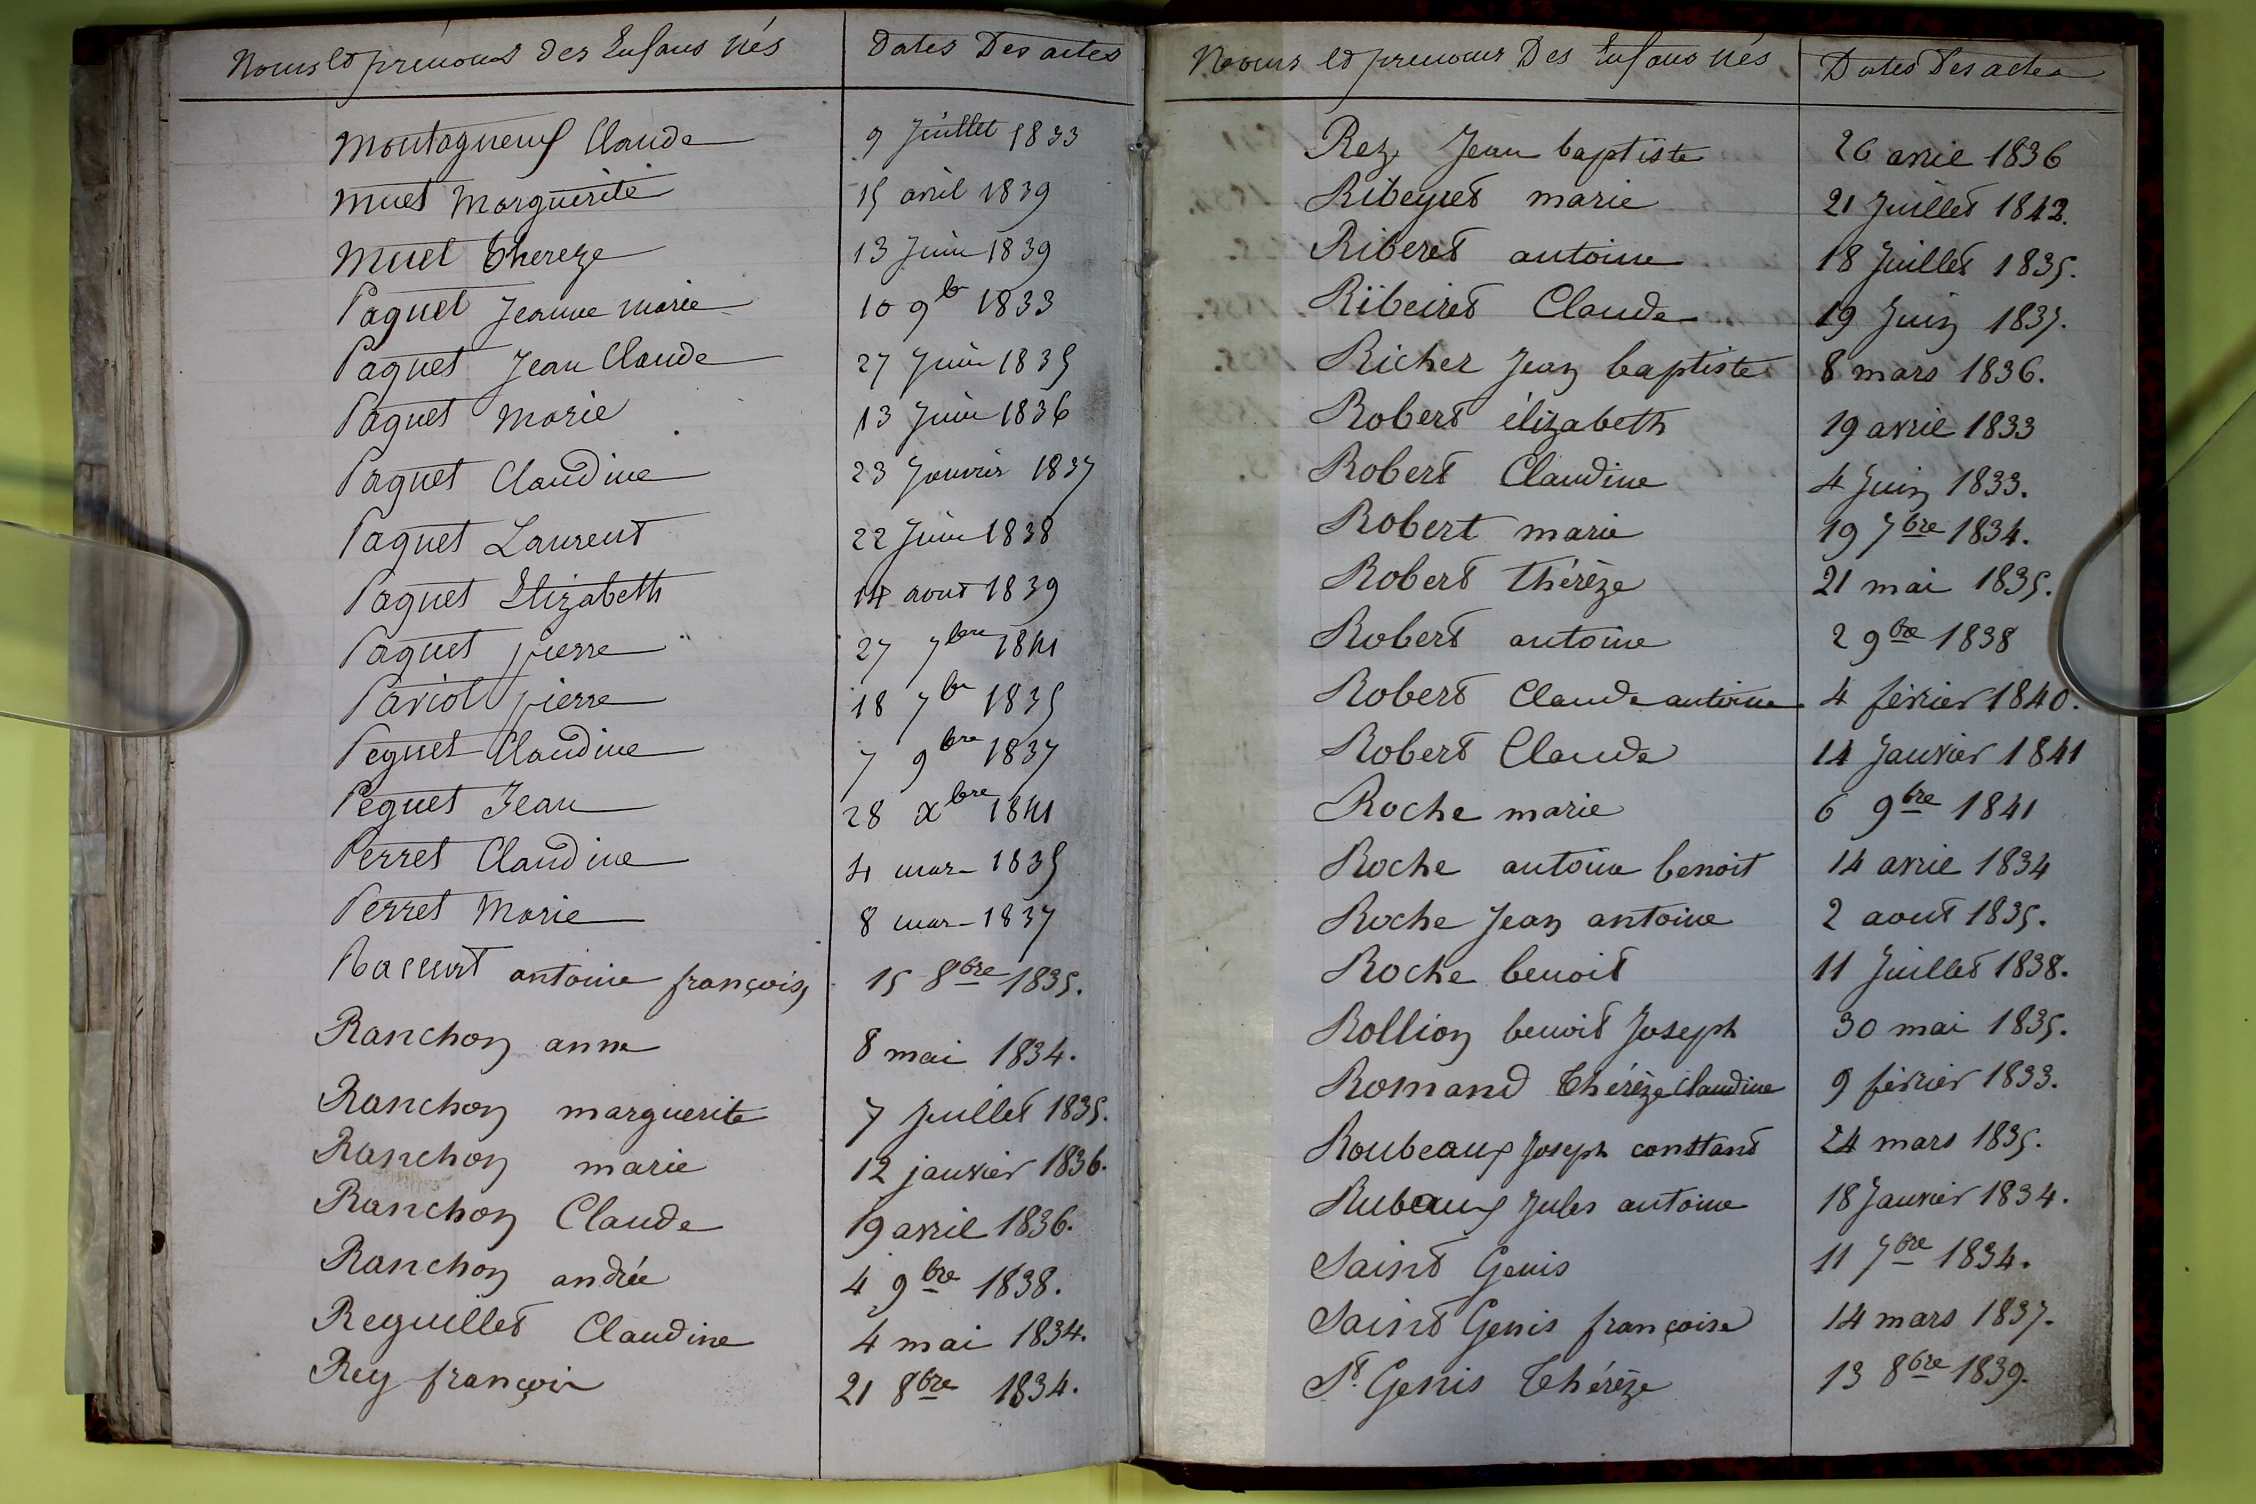 Noms et prénoms des Enfans nés
Dates Des actes
Montagneux Claude 9 Juillet 1833
Muet Marguerite 15 avril 1839
Muet Thereze 13 Juin 1839
Paquet Jeanne Marie 10 9br 1833
Paquet Jean Claude 27 Juin 1835
Paquet Marie 13 Juin 1836
Paquet Claudine 23 Janvier 1837
Paquet Laurent 22 Juin 1838
Paquet Elizabeth 14 aout 1839
Paquet pierre 27 7bre 1841
Pariol pierre 18 7br 1835
Peguet Claudine 7 9bre 1837
Peguet Jean 28 Xbre 1841
Perret Claudine 4 mar 1835
Perret Marie 8 mar 1837
Racurt antoine françois 15 8bre 1835.
Ranchon anne 8 mai 1834.
Ranchon marguerite 7 Juillet 1835.
Ranchon marie 12 janvier 1836.
Ranchon Claude 19 avril 1836.
Ranchon andrée 4 9bre 1838.
Reguillet Claudine 4 mai 1834.
Rey françois 21 8bre 1834.
Noms et prenoms Des Enfans nés
Dates Des actes
Rez Jean baptiste 26 avril 1836
Ribeyret marie 21 Juillet 1842.
Riberet antoine 18 Juillet 1835.
Ribeiret Claude 19 Juin 1837.
Richer Jean baptiste 8 mars 1836.
Robert élizabeth 19 avril 1833
Robert Claudine 4 Juin 1833.
Robert marie 19 7bre 1834.
Robert thérèze 21 mai 1835.
Robert antoine 2 9bre 1838
Robert Claude antoine 4 février 1840.
Robert Claude 14 Janvier 1841
Roche marie 6 9bre 1841
Roche antoine benoit 14 avril 1834
Roche Jean antoine 2 aout 1835.
Roche benoit 11 Juillet 1838.
Rollion benoit Joseph 30 mai 1835.
Romand Thérèze Claudine 9 février 1833.
Roubeaux Joseph constant 24 mars 1835.
Rubeaux Jules antoine 18 Janvier 1834.
Saint Genis 11 7bre 1834.
Saint Genis françoise 14 mars 1837.
St. Genis Thérèze 13 8bre 1839.